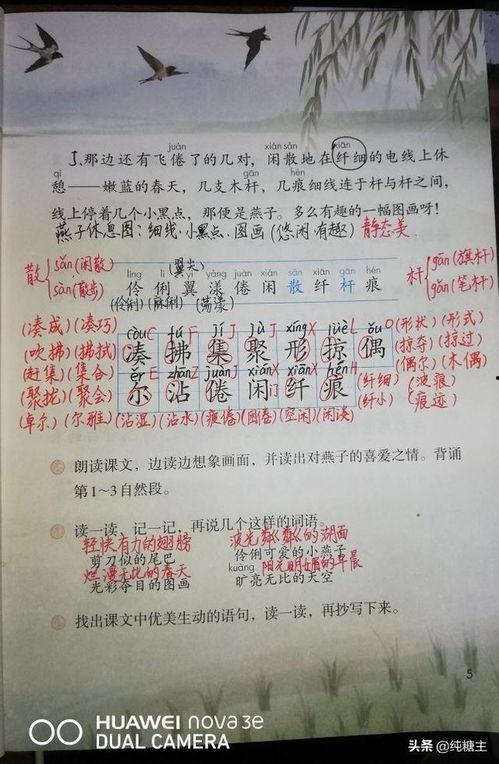 juàn xián sǎn xiān
5.那边还有飞倦了的几对，闲散地在纤细的电线上休
qì gān hén
憩——嫩蓝的春天，几支木杆，几痕细线连于杆与杆之间，
线上停着几个小黑点，那便是燕子。多么有趣的一幅图画呀！
燕子休息图：细线·小黑点·图画(悠闲有趣) 静态美
散 sǎn(闲散) sàn(散步)
(翼尖)
líng lì yì yàng juàn xián sǎn xiān gān hén
伶俐翼漾倦闲散纤杆痕
(伶俐) (麻俐) (荡漾)
杆 gān(旗杆) gǎn(笔杆)
còu C fú F jí J jù J xíng X lüè L ǒu O
凑拂集聚形掠偶
ěr E zhān Z juàn J xián X xiān X hén H
尔沾倦闲纤痕
(凑成)(凑巧)
(吹拂)(拂拭)
(赶集)(集合)
(聚拢)(聚会)
(形状)(形式)
(掠夺)(掠过)
(偶尔)(木偶)
(卓尔)(尔雅)(沾湿)(沾水)(疲倦)(困倦)(空闲)(闲淡)
(纤细)(纤小)
(波痕)
(痕迹)
朗读课文，边读边想象画面，并读出对燕子的喜爱之情。背诵
第1~3自然段。
读一读，记一记，再说几个这样的词语。
轻快有力的翅膀 波光粼粼的湖面
剪刀似的尾巴 伶俐可爱的小燕子
烂漫无比的春天 kuàng 阳光明媚的早晨
光彩夺目的图画 旷亮无比的天空
找出课文中优美生动的语句，读一读，再抄写下来。
5
HUAWEI nova 3e
DUAL CAMERA
头条 @纯糖主